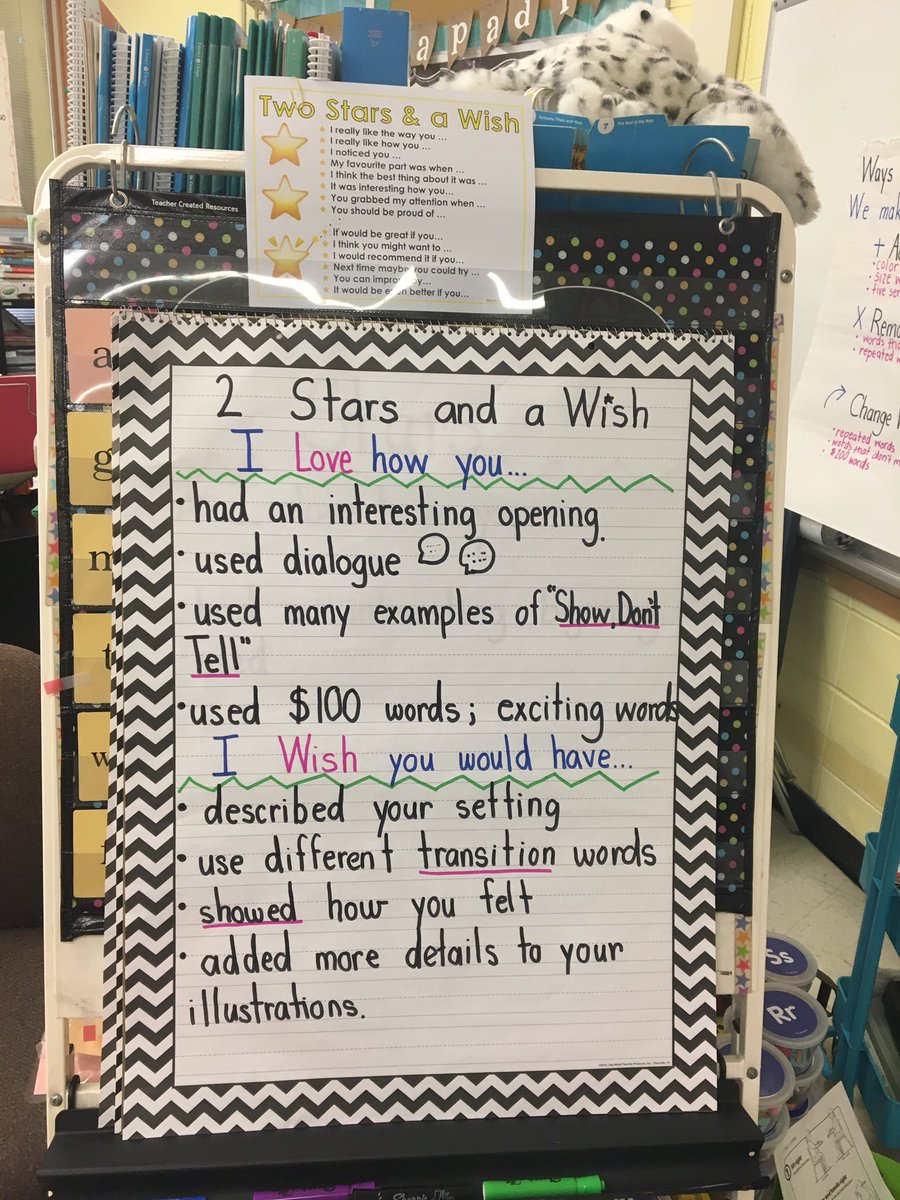 apadi
Two Stars & a Wish
I really like the way you ...
I really like how you ...
I noticed you ...
My favourite part was when ...
I think the best thing about it was ...
It was interesting how you...
You grabbed my attention when ...
You should be proud of ...
If would be great if you...
I think you might want to ...
I would recommend it if you...
Next time maybe you could try ...
You can improve by...
It would be even better if you...
Teacher Created Resources
7 The Bell in the Red
2 Stars and a Wish
I Love how you...
• had an interesting opening.
• used dialogue
• used many examples of "Show, Don't
Tell"
• used $100 words; exciting words
I Wish you would have...
• described your setting
• use different transition words
• showed how you felt
• added more details to your
illustrations.
a
g
m
t
w
Ways
We mak
+ A
• color
• size w
• five sen
X Remo
• words tha
• repeated w
Change
• repeated words
• words that don't m
• $100 words
Ss
Rr
Sharpie